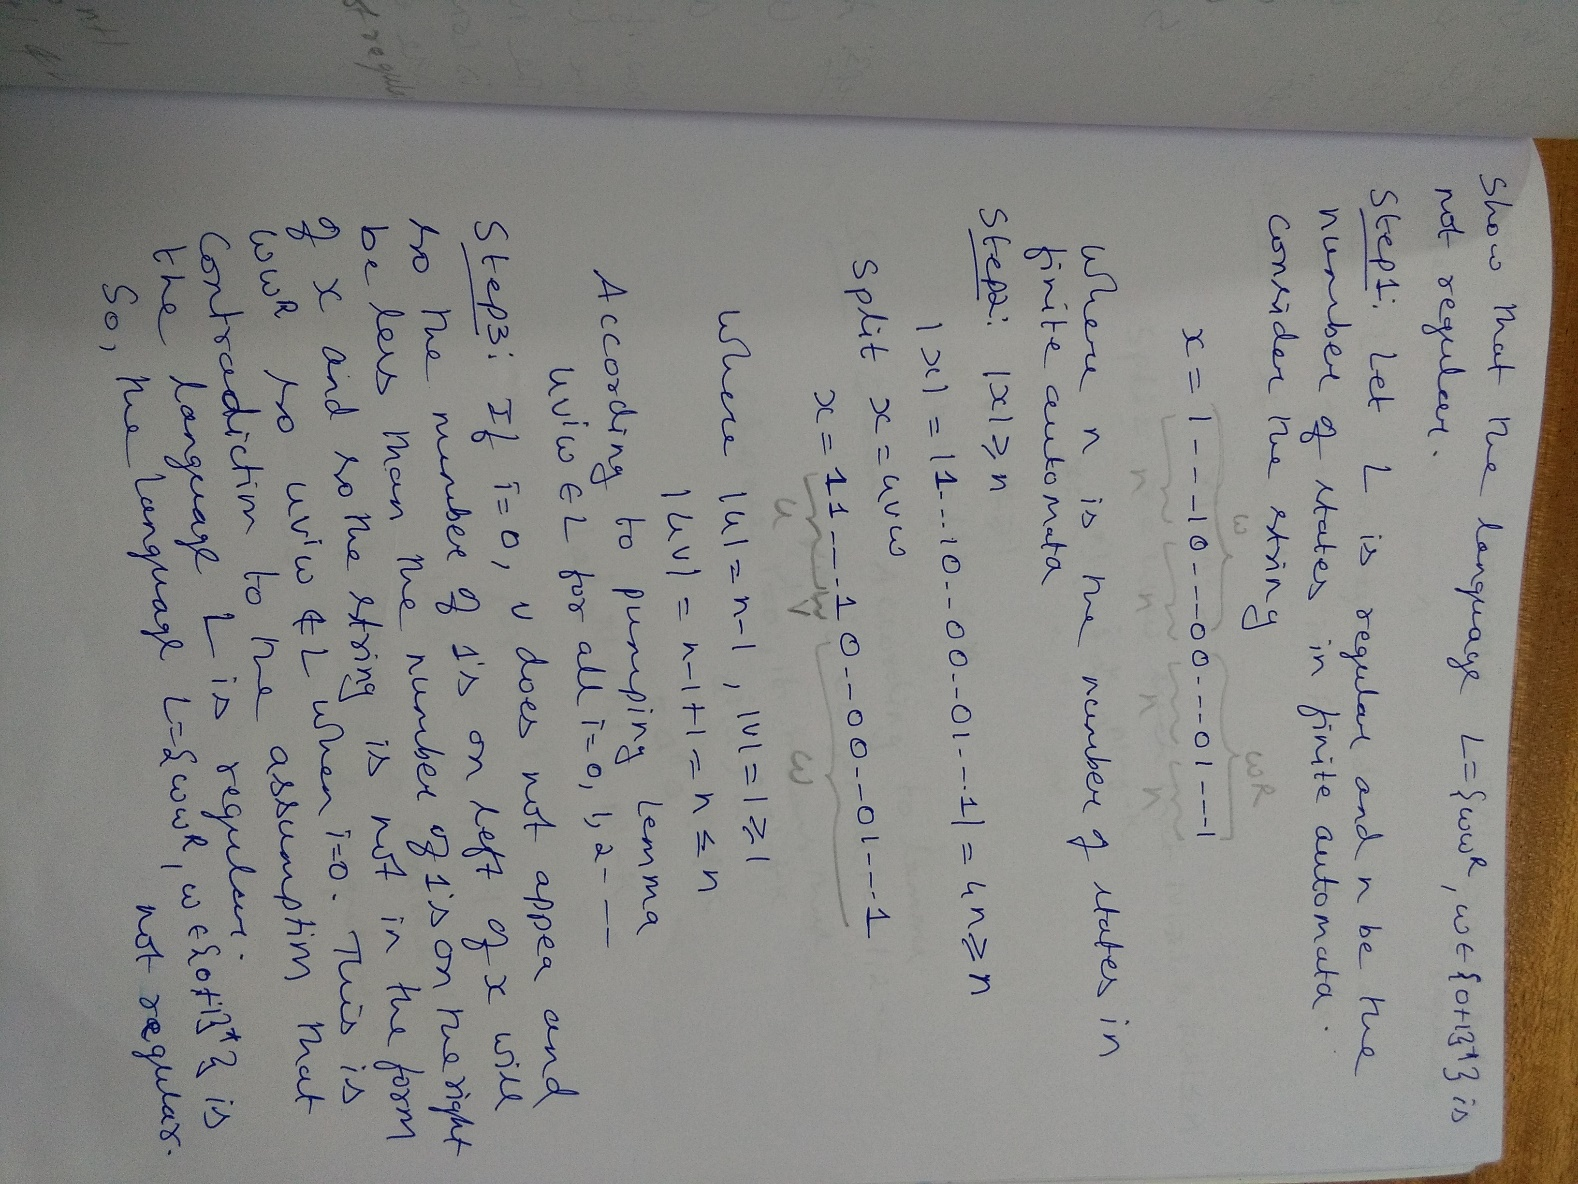 Show that the language L={wwR, w∈{0+1}*} is
not regular.
Step1: Let L is regular and n be the
number of states in finite automata.
Consider the string
w wR
x = 1---10---00---01---1
n n n n
Where n is the number of states in
finite automata
Step2: |x|≥n
|x| = |1--10--00--01--1| = 4n≥n
Split x=uvw
x = 11---10--00--01---1
u v w
Where |u|=n-1, |v|=1≥1
|uv|=n-1+1=n≤n
According to pumping lemma
uviw∈L for all i=0,1,2---
Step3: If i=0, v does not appea and
so the number of 1's on left of x will
be less than the number of 1's on the right
of x and so the string is not in the form
wwR so uviw∉L when i=0. This is
contradiction to the assumption that
the language L is regular.
So, the language L={wwR, w∈{0+1}*} is
not regular.
n+1